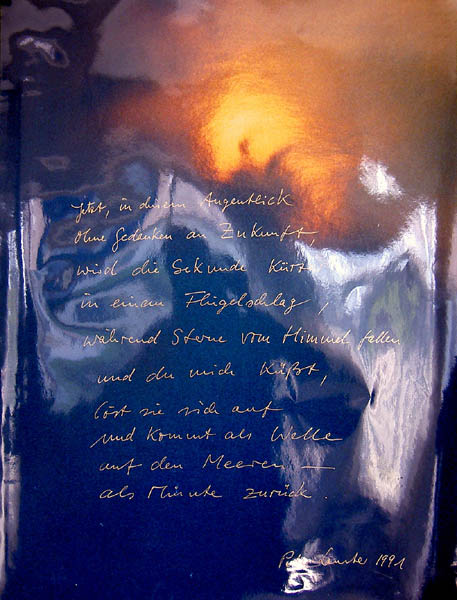 Jetzt, in diesem Augenblick
ohne Gedanken an Zukunft,
wird die Sekunde Kürz
in einem Flügelschlag,
während Sterne vom Himmel fallen
und du mich küßt,
löst sie sich auf
und kommt als Welle
auf den Meeren —
als Minute zurück.
1991